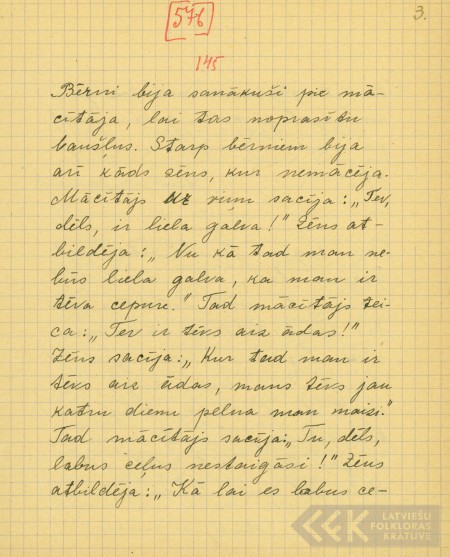 [576]
3.
145
Bērni bija sanākuši pie mā-
cītāja, lai tas noprasītu
baušļus. Starp bērniem bija
arī kāds zēns, kur nemācēja.
Mācītājs uz viņu sacīja: „Tev,
dēls, ir liela galva!" Zēns at-
bildēja: „Nu kā tad man ne-
būs liela galva, ka man ir
tēva cepure." Tad mācītājs tei-
ca: „Tev ir tēvs aiz ādas!"
Zēns sacīja: „Kur tad man ir
tēvs aiz ādas, mans tēvs jau
katru dienu pelna man maizi."
Tad mācītājs sacīja: „Tu, dēls,
labus ceļus nestaigāsi!" Zēns
atbildēja: „Kā lai es labus ce-
LATVIEŠU
FOLKLORAS
KRĀTUVE